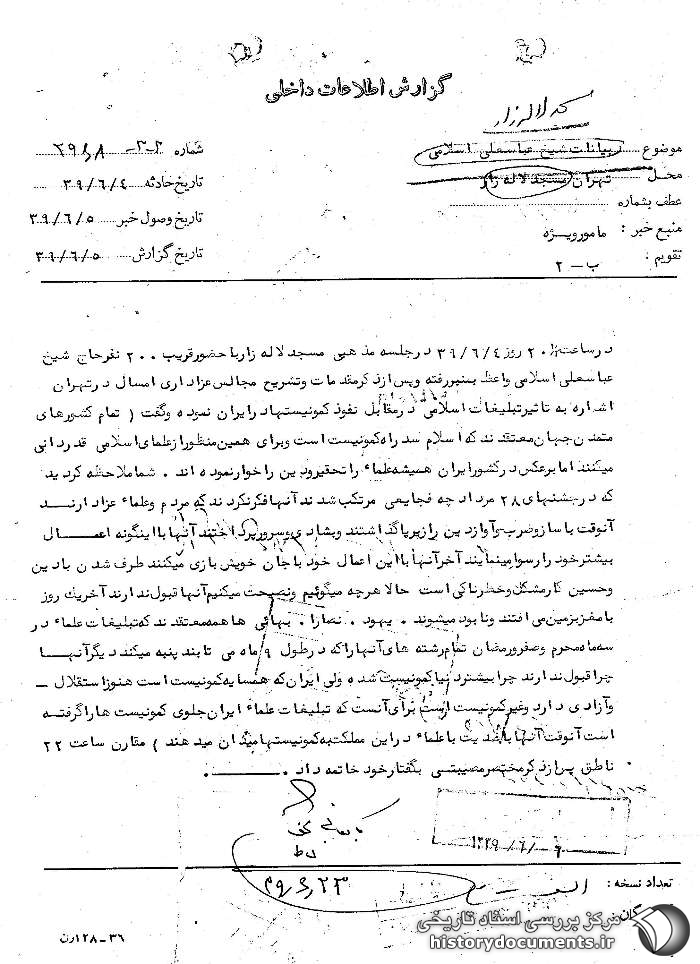 گزارش اطلاعات داخلی
موضوع بیانات شیخ عباسعلی اسلامی
شماره
محل تهران مسجد لاله زار
تاریخ حادثه ۳۹/۶/۴
عطف بشماره
تاریخ وصول خبر ۳۹/۶/۵
منبع خبر : مامور ویژه
تاریخ گزارش ۳۹/۶/۵
تقویم : ب - ۲
در ساعت ۲۰ روز ۳۹/۶/۴ در جلسه مذهبی مسجد لاله زار با حضور قریب ۲۰۰ نفر حاج شیخ
عباسعلی اسلامی واعظ بمنبر رفته و پس از ذکر مقدمات و تشریح مجالس عزاداری امسال در تهران
اشاره به تاثیر تبلیغات اسلامی در مقابل نفوذ کمونیستها در ایران نموده و گفت ( تمام کشورهای
متمدن جهان معتقدند که اسلام سد راه کمونیست است و برای همین منظور از علمای اسلامی قدردانی
میکنند اما برعکس در کشور ایران همیشه علماء را تحقیر و دین را خوار نموده اند . شما ملاحظه کردید
که در جشنهای ۲۸ مرداد چه فجایعی مرتکب شدند آنها فکر نکردند که مردم و علماء عزادارند
آنوقت با ساز و ضرب و آواز دین را زیر پا گذاشتند و بشادی و سرور پرداختند آنها با اینگونه اعمال
بیشتر خود را رسوا مینمایند آخر آنها با این اعمال خود با جان خویش بازی میکنند طرف شدن با دین
و حسین کار مشکل و خطرناکی است حالا هرچه میگوئیم و نصیحت میکنیم آنها قبول ندارند آخر یک روز
با مغز بزمین می افتند و نابود میشوند . یهود . نصارا . بهائی ها همه معتقدند که تبلیغات علماء در
سه ماه محرم و صفر و رمضان تمام رشته های آنها را که در طول ۹ ماه می تابند پنبه میکند دیگر آنها
چرا قبول ندارند چرا بیشتر دنیا کمونیست شده ولی ایران که همسایه کمونیست است هنوز استقلال -
و آزادی دارد و غیر کمونیست است برای آنست که تبلیغات علماء ایران جلوی کمونیست ها را گرفته
است آنوقت آنها با ضدیت با علماء در این مملکت به کمونیستها میدان میدهند ) مقارن ساعت ۲۲
ناطق پس از ذکر مختصر مصیبتی بگفتار خود خاتمه داد .
تعداد نسخه :
گان
۳۶-۱۲۸رن
مرکز بررسی اسناد تاریخی
historydocuments.ir